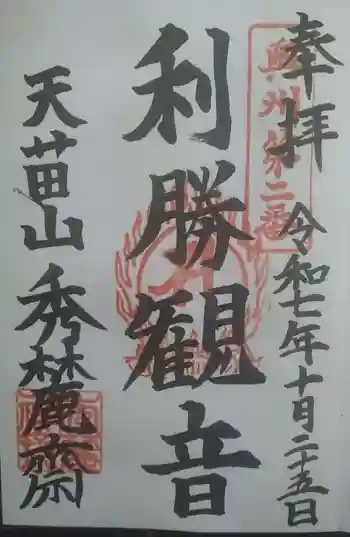 奉拝
奥州第二番
令和七年十月二十五日
利勝観音
天苗山 秀麓齋